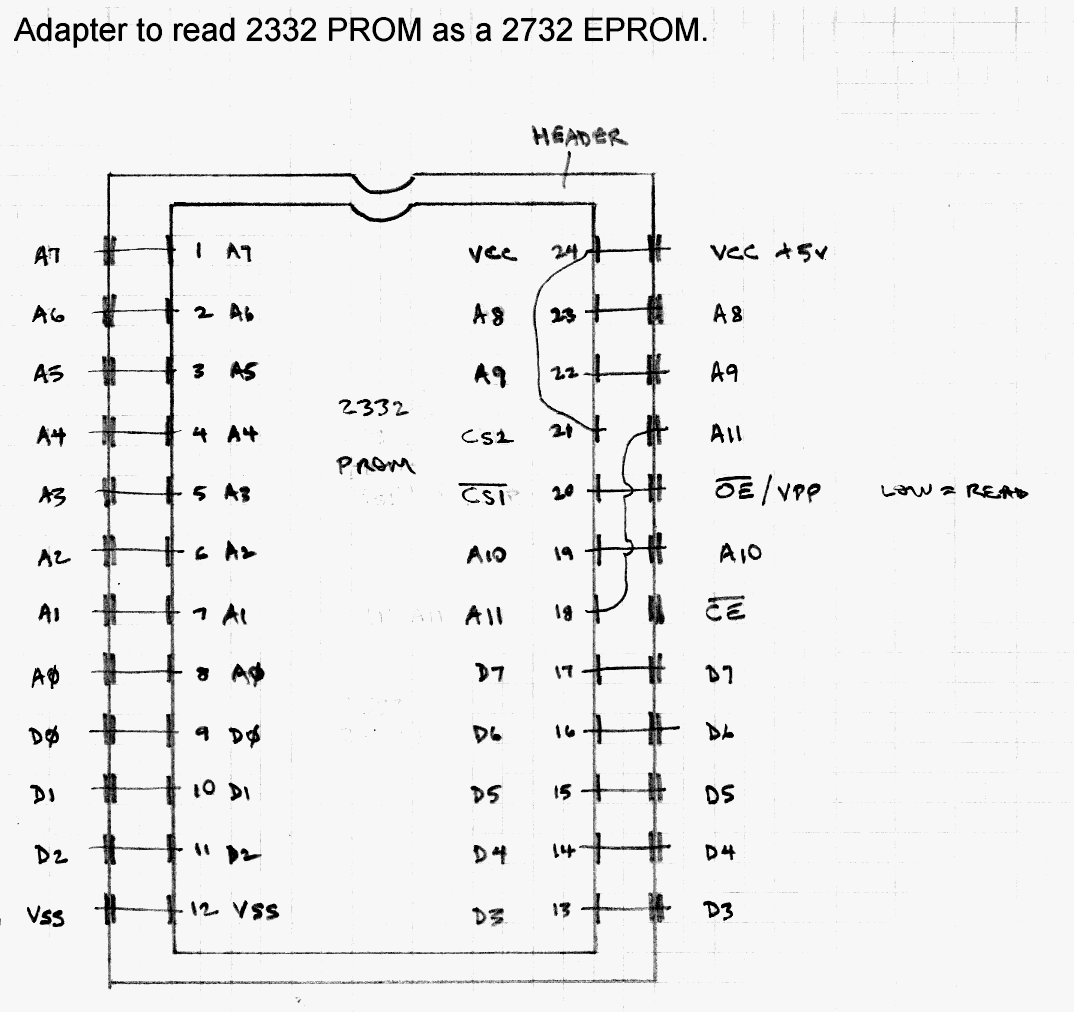 Adapter to read 2332 PROM as a 2732 EPROM.
HEADER
A7 1 A7 VCC 24 VCC +5V
A6 2 A6 A8 23 A8
A5 3 A5 A9 22 A9
2332
A4 4 A4 CS2 21 A11
PROM
A3 5 A3 C̅S̅1̅ 20 O̅E̅/VPP LOW = READ
A2 6 A2 A10 19 A10
A1 7 A1 A11 18 C̅E̅
AØ 8 AØ D7 17 D7
DØ 9 DØ D6 16 D6
D1 10 D1 D5 15 D5
D2 11 D2 D4 14 D4
VSS 12 VSS D3 13 D3